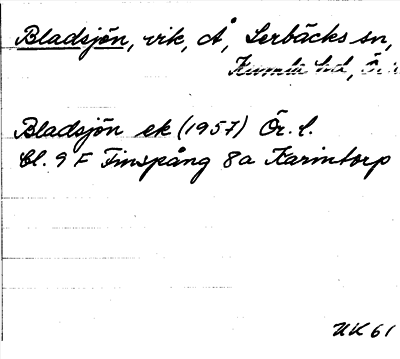 Bladsjön, vik, Å, Lerbäcks sn,
Kumla hd, Ö.
Bladsjön ek (1957) Ör. l.
Bl. 9 F Finspång 8a Karintorp
UK 61